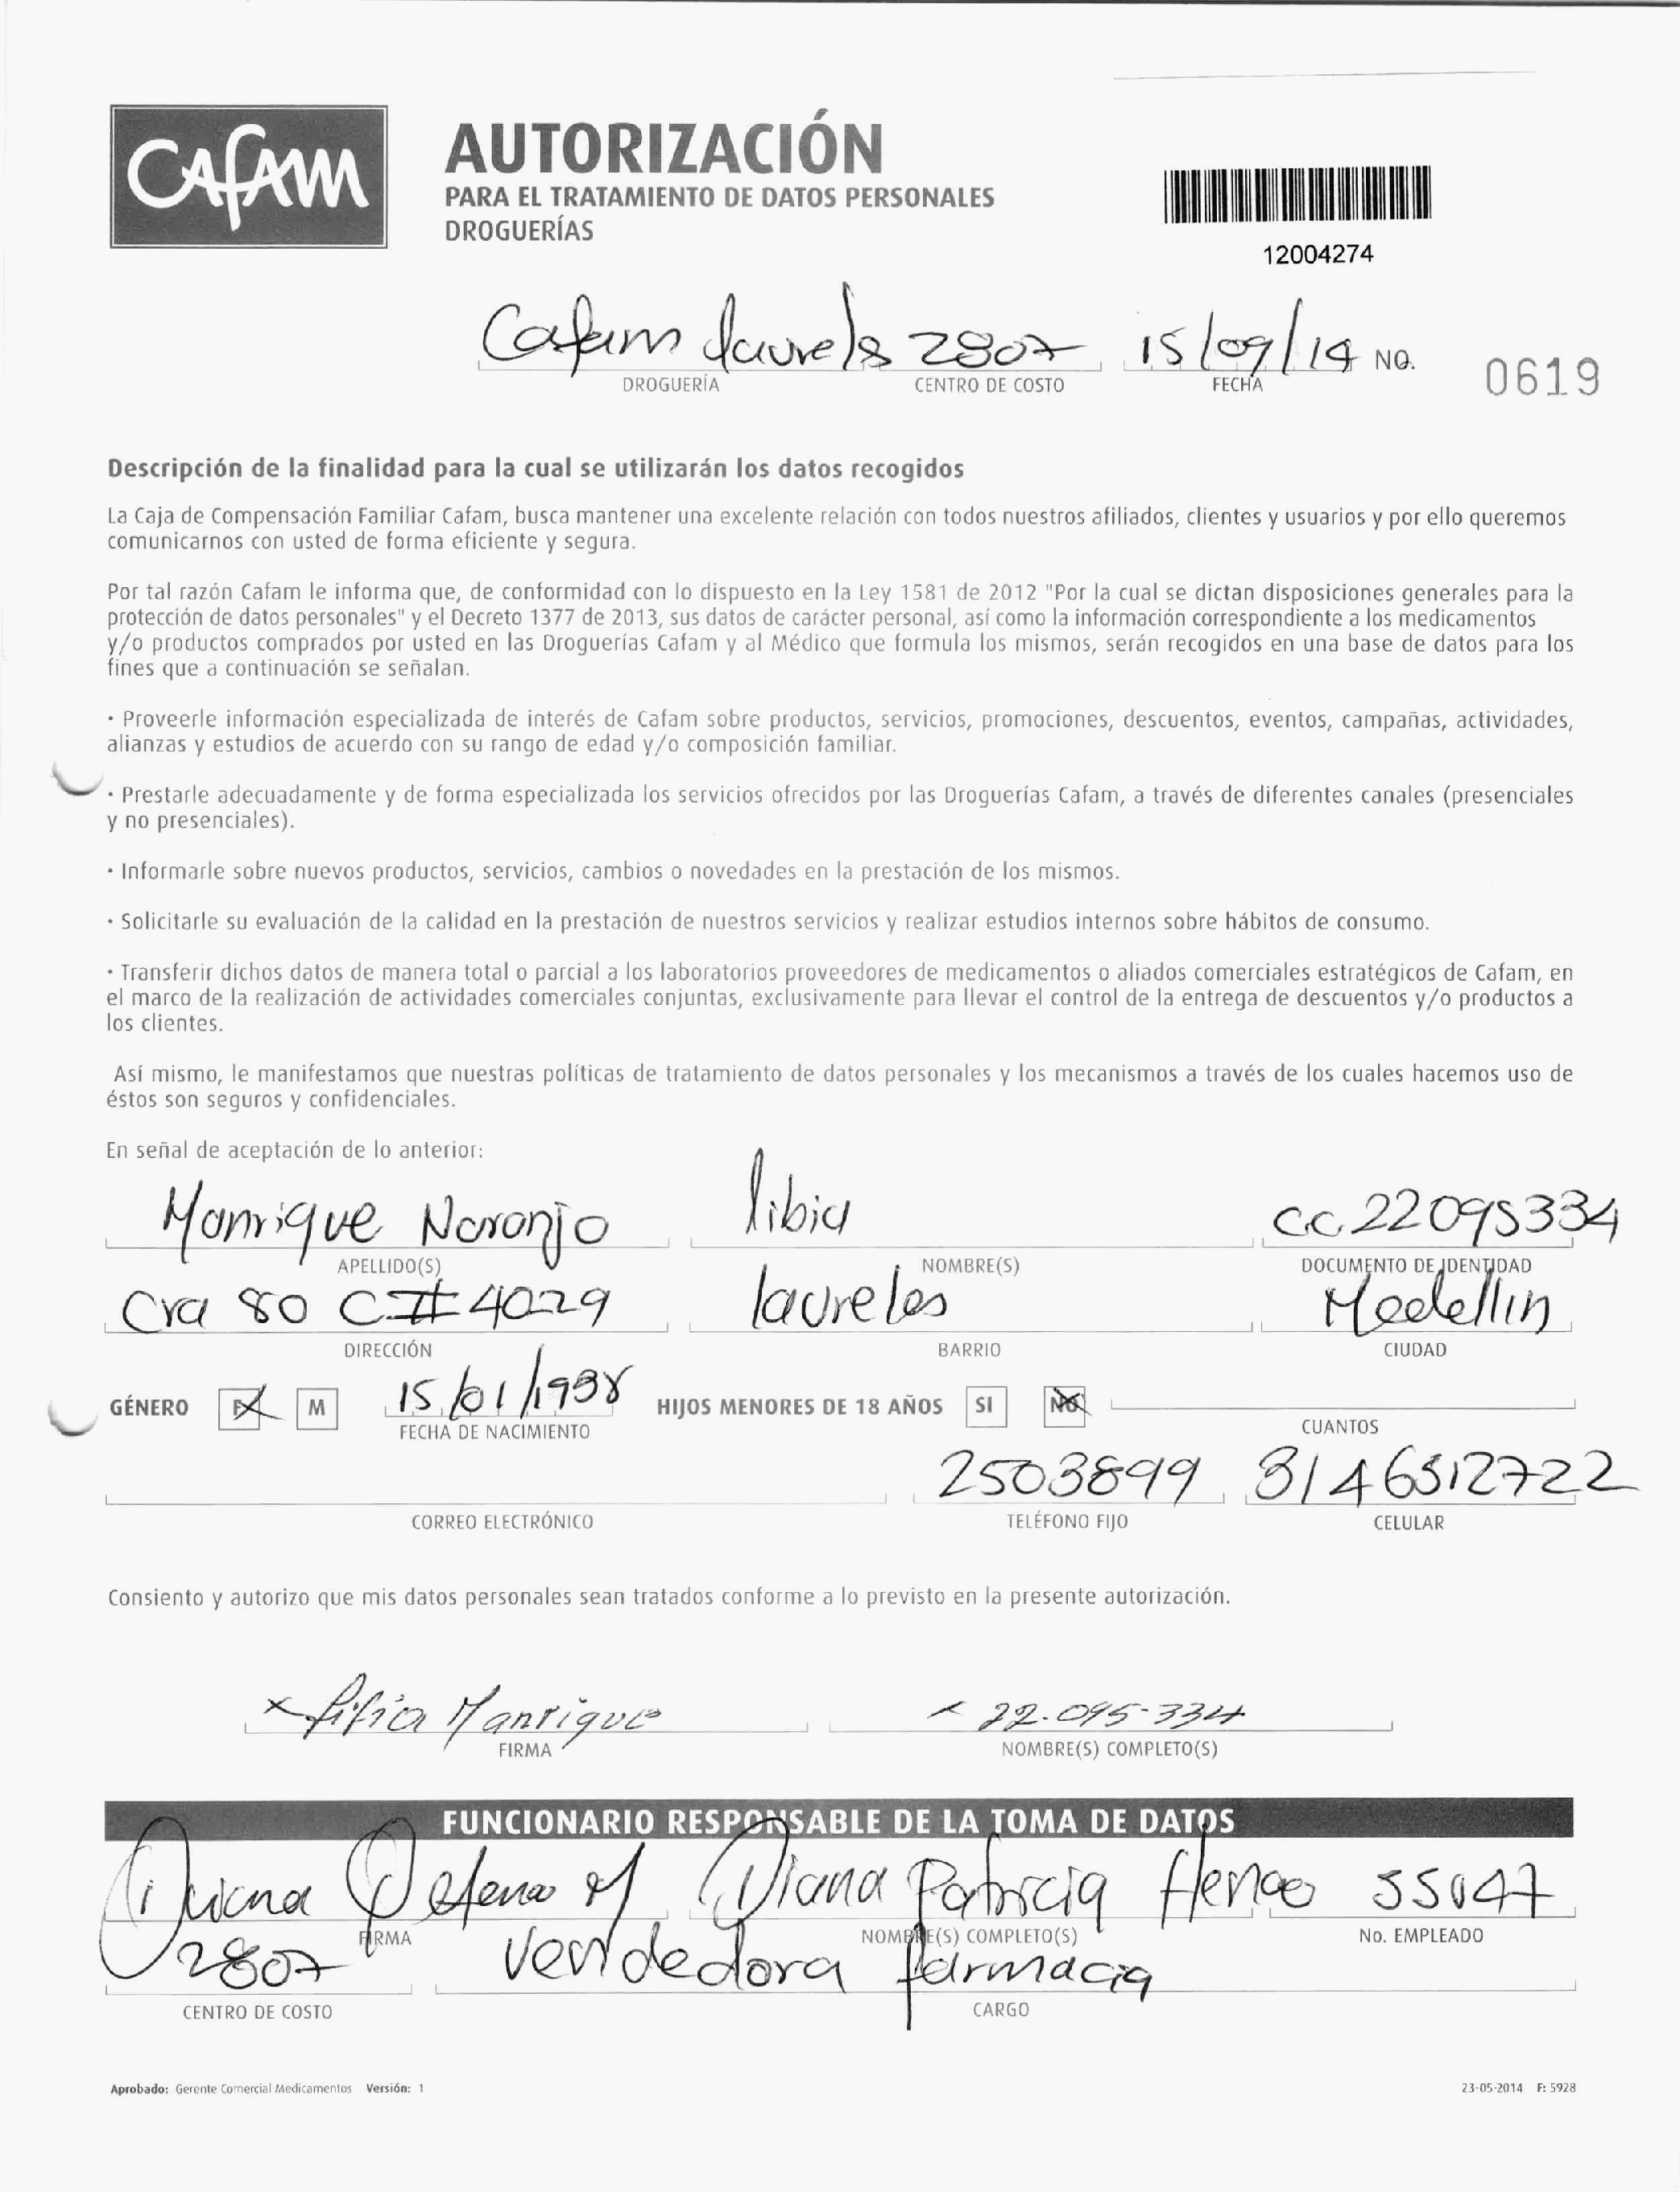 CAFAM
AUTORIZACIÓN
PARA EL TRATAMIENTO DE DATOS PERSONALES
DROGUERÍAS
12004274
Cafam laureles 2807 15/09/14 NO. 0619
DROGUERÍA CENTRO DE COSTO FECHA
Descripción de la finalidad para la cual se utilizarán los datos recogidos
La Caja de Compensación Familiar Cafam, busca mantener una excelente relación con todos nuestros afiliados, clientes y usuarios y por ello queremos
comunicarnos con usted de forma eficiente y segura.
Por tal razón Cafam le informa que, de conformidad con lo dispuesto en la Ley 1581 de 2012 "Por la cual se dictan disposiciones generales para la
protección de datos personales" y el Decreto 1377 de 2013, sus datos de carácter personal, así como la información correspondiente a los medicamentos
y/o productos comprados por usted en las Droguerías Cafam y al Médico que formula los mismos, serán recogidos en una base de datos para los
fines que a continuación se señalan.
· Proveerle información especializada de interés de Cafam sobre productos, servicios, promociones, descuentos, eventos, campañas, actividades,
alianzas y estudios de acuerdo con su rango de edad y/o composición familiar.
· Prestarle adecuadamente y de forma especializada los servicios ofrecidos por las Droguerías Cafam, a través de diferentes canales (presenciales
y no presenciales).
· Informarle sobre nuevos productos, servicios, cambios o novedades en la prestación de los mismos.
· Solicitarle su evaluación de la calidad en la prestación de nuestros servicios y realizar estudios internos sobre hábitos de consumo.
· Transferir dichos datos de manera total o parcial a los laboratorios proveedores de medicamentos o aliados comerciales estratégicos de Cafam, en
el marco de la realización de actividades comerciales conjuntas, exclusivamente para llevar el control de la entrega de descuentos y/o productos a
los clientes.
Así mismo, le manifestamos que nuestras políticas de tratamiento de datos personales y los mecanismos a través de los cuales hacemos uso de
éstos son seguros y confidenciales.
En señal de aceptación de lo anterior:
Manrique Naranjo libia cc 22095334
APELLIDO(S) NOMBRE(S) DOCUMENTO DE IDENTIDAD
Cra 80 C # 4029 laureles Medellin
DIRECCIÓN BARRIO CIUDAD
GÉNERO F M 15/01/1938 HIJOS MENORES DE 18 AÑOS SI NO
FECHA DE NACIMIENTO CUANTOS
2503899 3146312722
CORREO ELECTRÓNICO TELÉFONO FIJO CELULAR
Consiento y autorizo que mis datos personales sean tratados conforme a lo previsto en la presente autorización.
x Libia Manrique x 22.095-334
FIRMA NOMBRE(S) COMPLETO(S)
FUNCIONARIO RESPONSABLE DE LA TOMA DE DATOS
Diana Patricia Henao 55047
FIRMA NOMBRE(S) COMPLETO(S) No. EMPLEADO
2807 vendedora farmacia
CENTRO DE COSTO CARGO
Aprobado: Gerente Comercial Medicamentos Versión: 1 23-05-2014 F: 5928